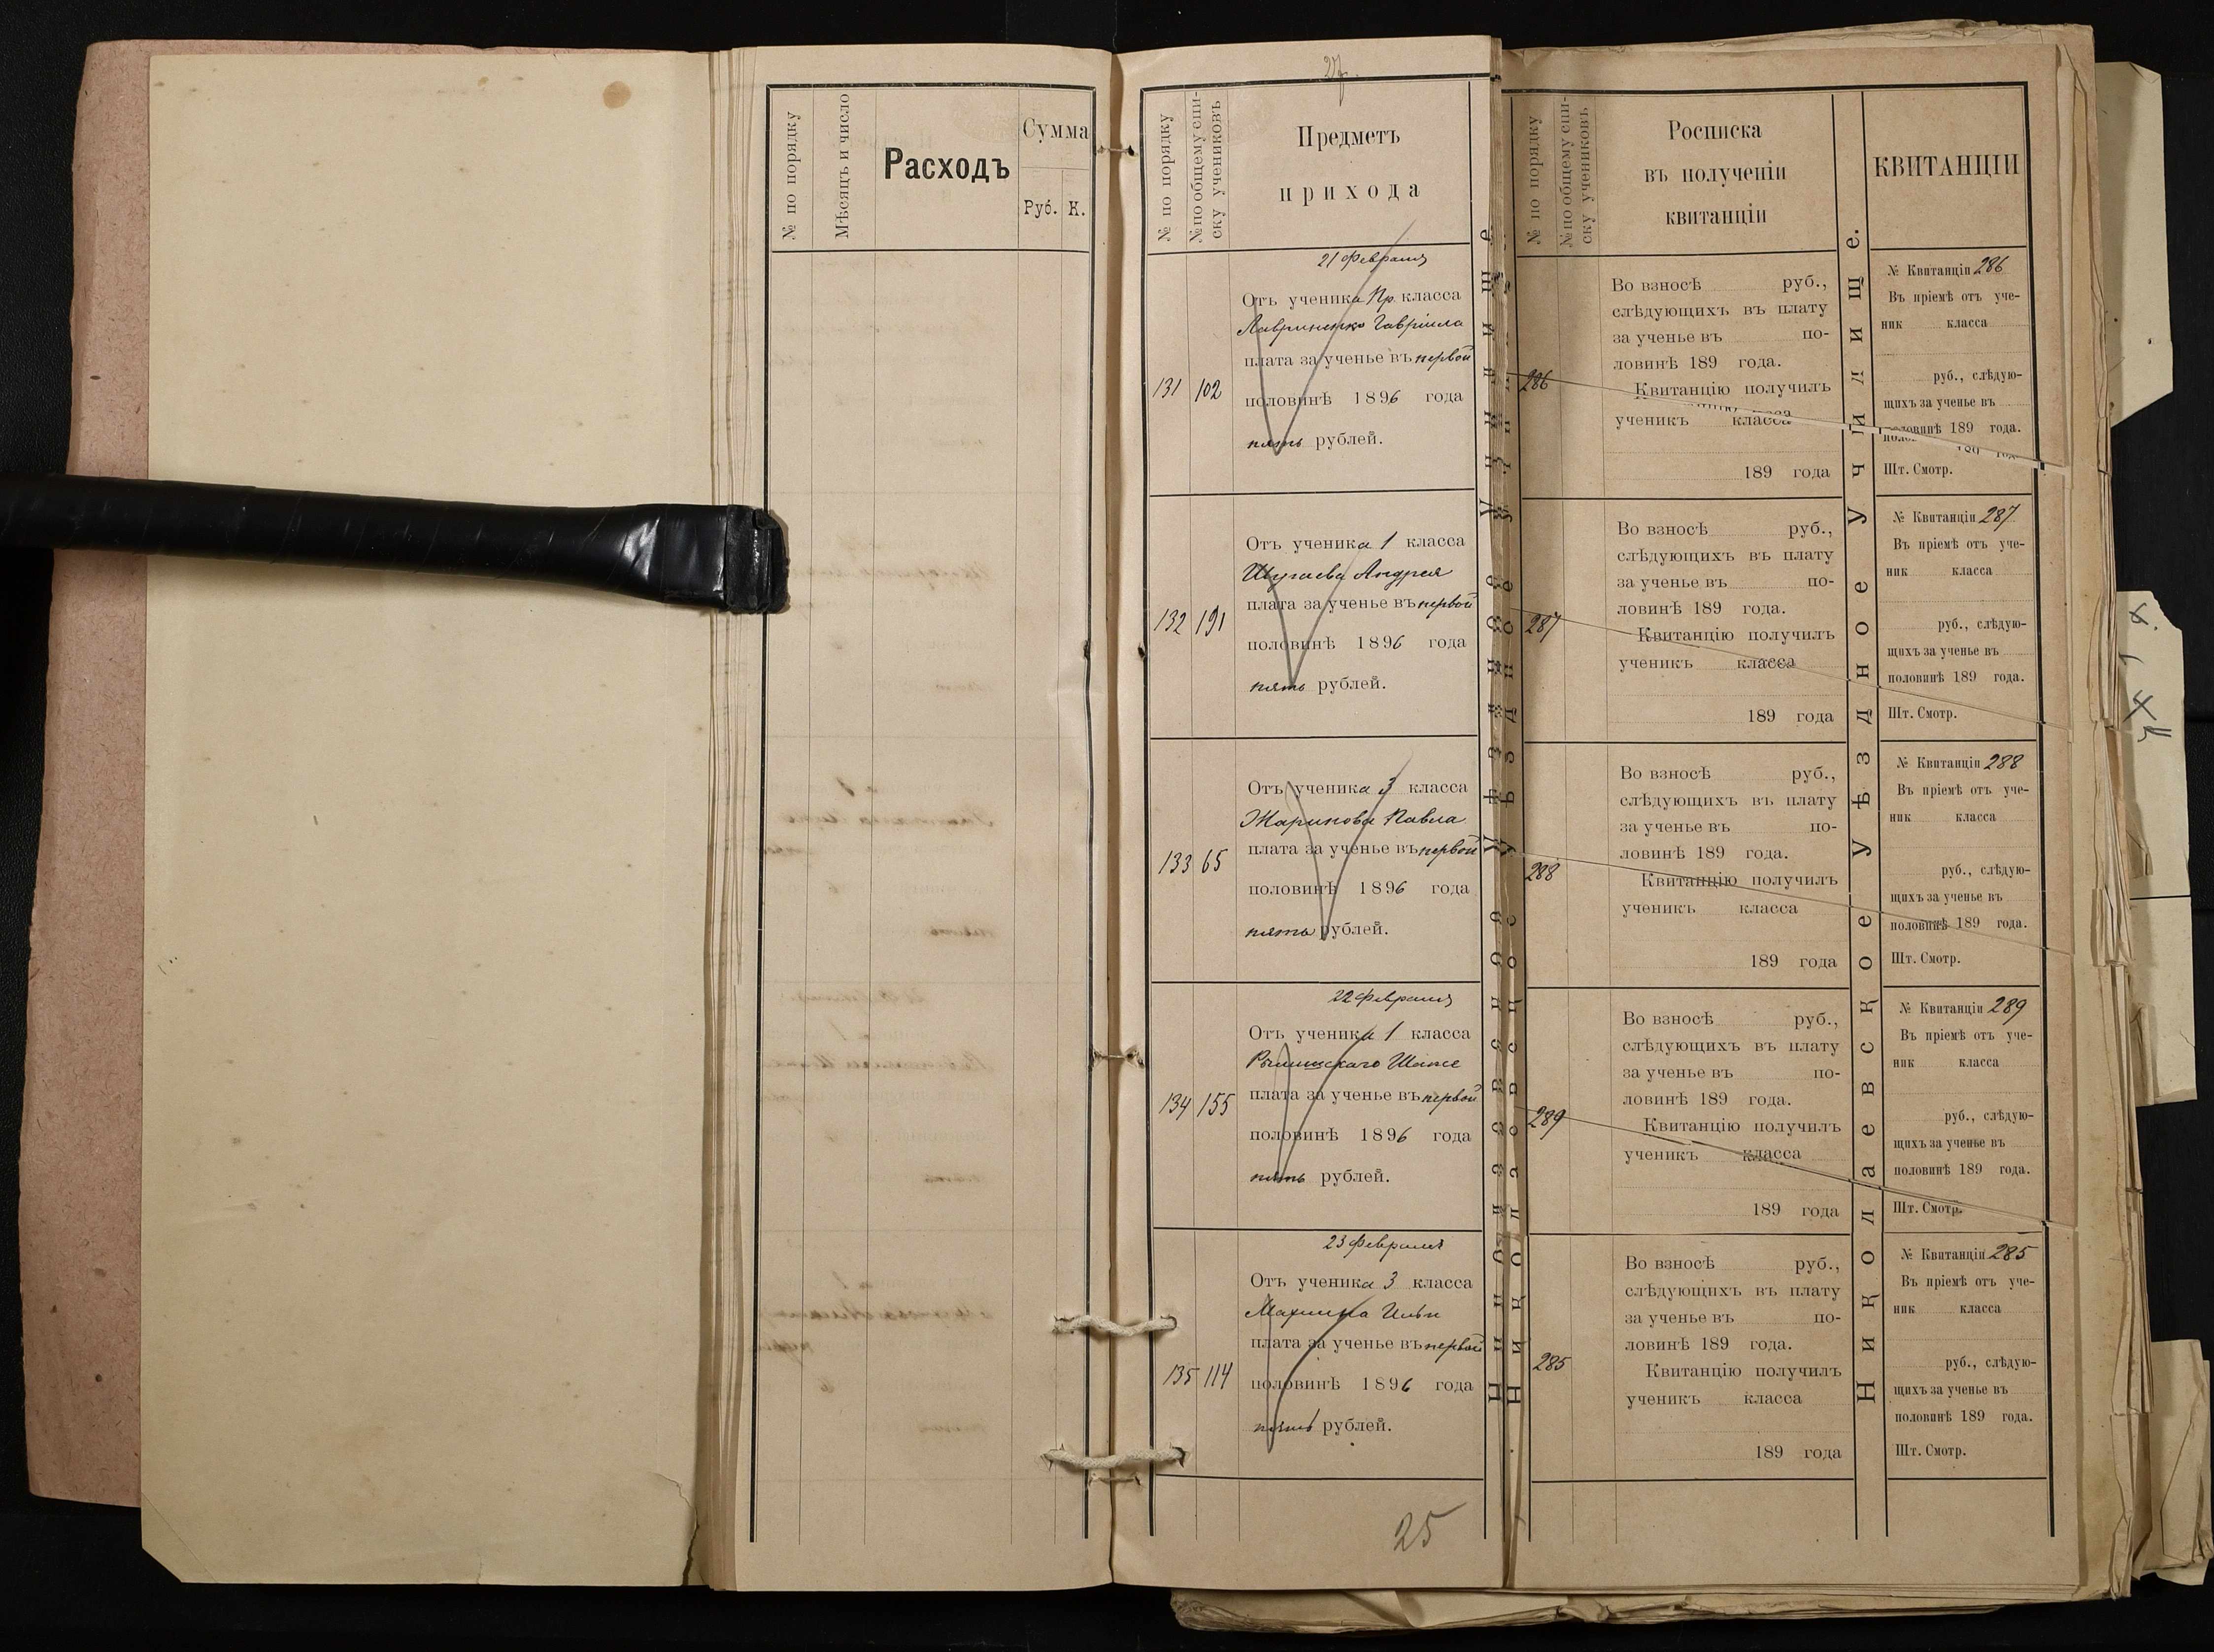 № по порядку
Мѣсяцъ и число
Расходъ
Сумма
Руб. К.
27.
№ по порядку
№ по общему спи-
ску учениковъ
Предметъ
прихода
21 Февраля
131 102
Отъ ученика Пр. класса
Лавриненко Гавріила
плата за ученье въ первой
половинѣ 1896 года
пять рублей.
132 191
Отъ ученика 1 класса
Андрея
плата за ученье въ первой
половинѣ 1896 года
пять рублей.
133 65
Отъ ученика 3 класса
Жаринова Павла
плата за ученье въ первой
половинѣ 1896 года
пять рублей.
22 Февраля
134 155
Отъ ученика 1 класса
плата за ученье въ первой
половинѣ 1896 года
пять рублей.
23 Февраля
135 114
Отъ ученика 3 класса
Махнина Ильи
плата за ученье въ первой
половинѣ 1896 года
пять рублей.
25
№ по порядку
№ по общему спи-
ску учениковъ
Росписка
въ полученіи
квитанціи
286
Во взносѣ руб.,
слѣдующихъ въ плату
за ученье въ по-
ловинѣ 189 года.
Квитанцію получилъ
ученикъ класса
189 года
287
Во взносѣ руб.,
слѣдующихъ въ плату
за ученье въ по-
ловинѣ 189 года.
Квитанцію получилъ
ученикъ класса
189 года
288
Во взносѣ руб.,
слѣдующихъ въ плату
за ученье въ по-
ловинѣ 189 года.
Квитанцію получилъ
ученикъ класса
189 года
289
Во взносѣ руб.,
слѣдующихъ въ плату
за ученье въ по-
ловинѣ 189 года.
Квитанцію получилъ
ученикъ класса
189 года
285
Во взносѣ руб.,
слѣдующихъ въ плату
за ученье въ по-
ловинѣ 189 года.
Квитанцію получилъ
ученикъ класса
189 года
Николаевское Уѣздное Училище.
КВИТАНЦІИ
№ Квитанціи 286
Въ пріемѣ отъ уче-
ник класса
руб., слѣдую-
щихъ за ученье въ
половинѣ 189 года.
Шт. Смотр.
№ Квитанціи 287
Въ пріемѣ отъ уче-
ник класса
руб., слѣдую-
щихъ за ученье въ
половинѣ 189 года.
Шт. Смотр.
№ Квитанціи 288
Въ пріемѣ отъ уче-
ник класса
руб., слѣдую-
щихъ за ученье въ
половинѣ 189 года.
Шт. Смотр.
№ Квитанціи 289
Въ пріемѣ отъ уче-
ник класса
руб., слѣдую-
щихъ за ученье въ
половинѣ 189 года.
Шт. Смотр.
№ Квитанціи 285
Въ пріемѣ отъ уче-
ник класса
руб., слѣдую-
щихъ за ученье въ
половинѣ 189 года.
Шт. Смотр.